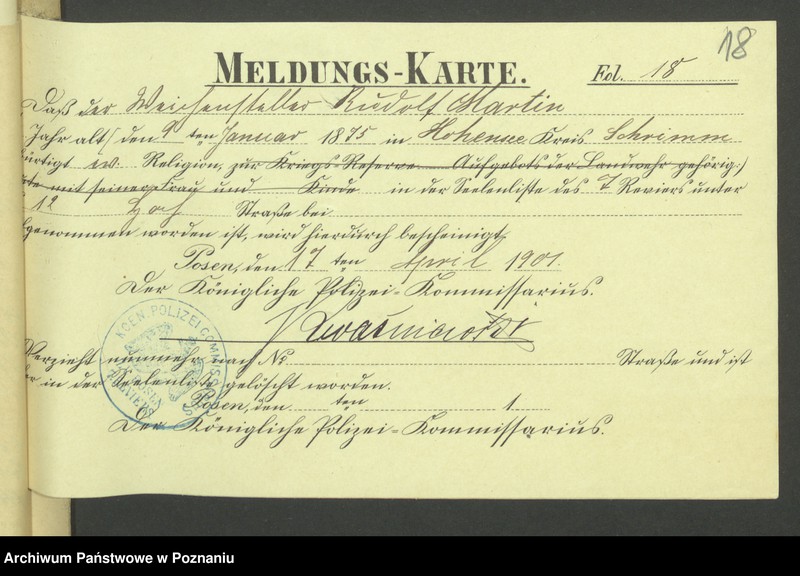 18
MELDUNGS-KARTE. Fol. 18
Daß der Weichensteller Rudolf Martin
Jahr alt/ den 9 ten Januar 1875 in Hohensee Kreis Schrimm
ürtigt ev. Religion, zur Kriegs-Reserve Aufgebots der Landwehr gehörig:)
mit seiner Frau und Kinde in der Seelenliste des 7 Reviers unter
12 Straße bei
genommen worden ist, wird hierdurch bescheinigt.
Posen, den 17 ten April 1901.
Der Königliche Polizei-Kommissarius.
KOEN. POLIZEI COMMISSARIUS
POSEN
REVIERS
Verzieht nunmehr nach No Straße und ist
er in der Seelenliste gelöscht worden.
Posen, den ten 1
Der Königliche Polizei-Kommissarius.
Archiwum Państwowe w Poznaniu